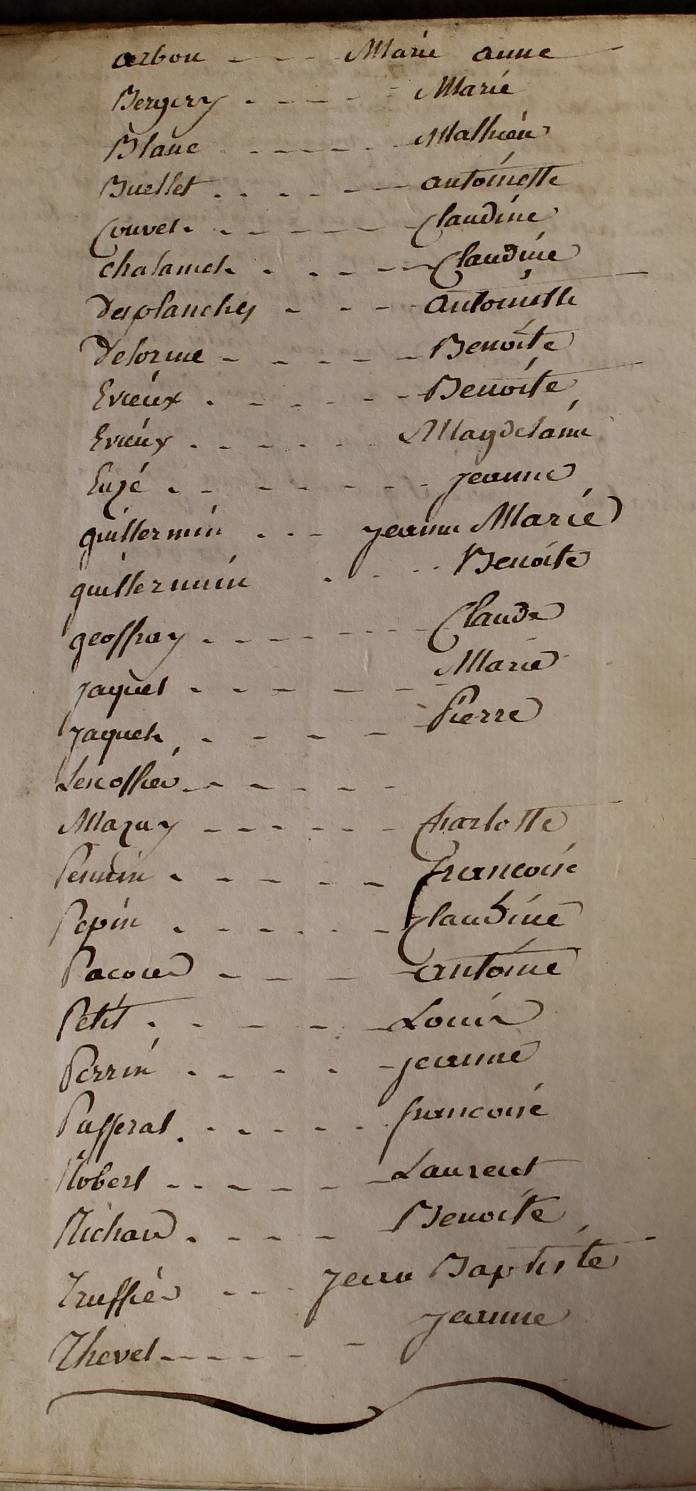 arbon - - - - Marie anne
Bergery - - - - - Marie
Blanc - - - - - Mathieu
Buellet - - - - - antoinette
Couvet - - - - - Claudine
Chalamet - - - - Claudine
Desplanches - - - - antoinette
Delorme - - - - - Benoite
Evieux - - - - - Benoite
Evieux - - - - - Magdelaine
- - - - - - jeanne
guillermin - - - jeanne Marie
guillermin - - - - Benoite
geoffray - - - - - - Claude
jaquet - - - - - - Marie
jaquet - - - - - Pierre
Lescoffier - - - - - -
Mazuy - - - - - - Charlotte
- - - - - francoise
Pepin - - - - - Claudine
Pacoud - - - - antoine
Petit - - - - - Louis
Perrin - - - - - jeanne
Pufferat - - - - - francoise
Robert - - - - - - Laurent
Richard - - - - Benoite
Truffier - - - jean Baptiste
Thevet - - - - - - jeanne